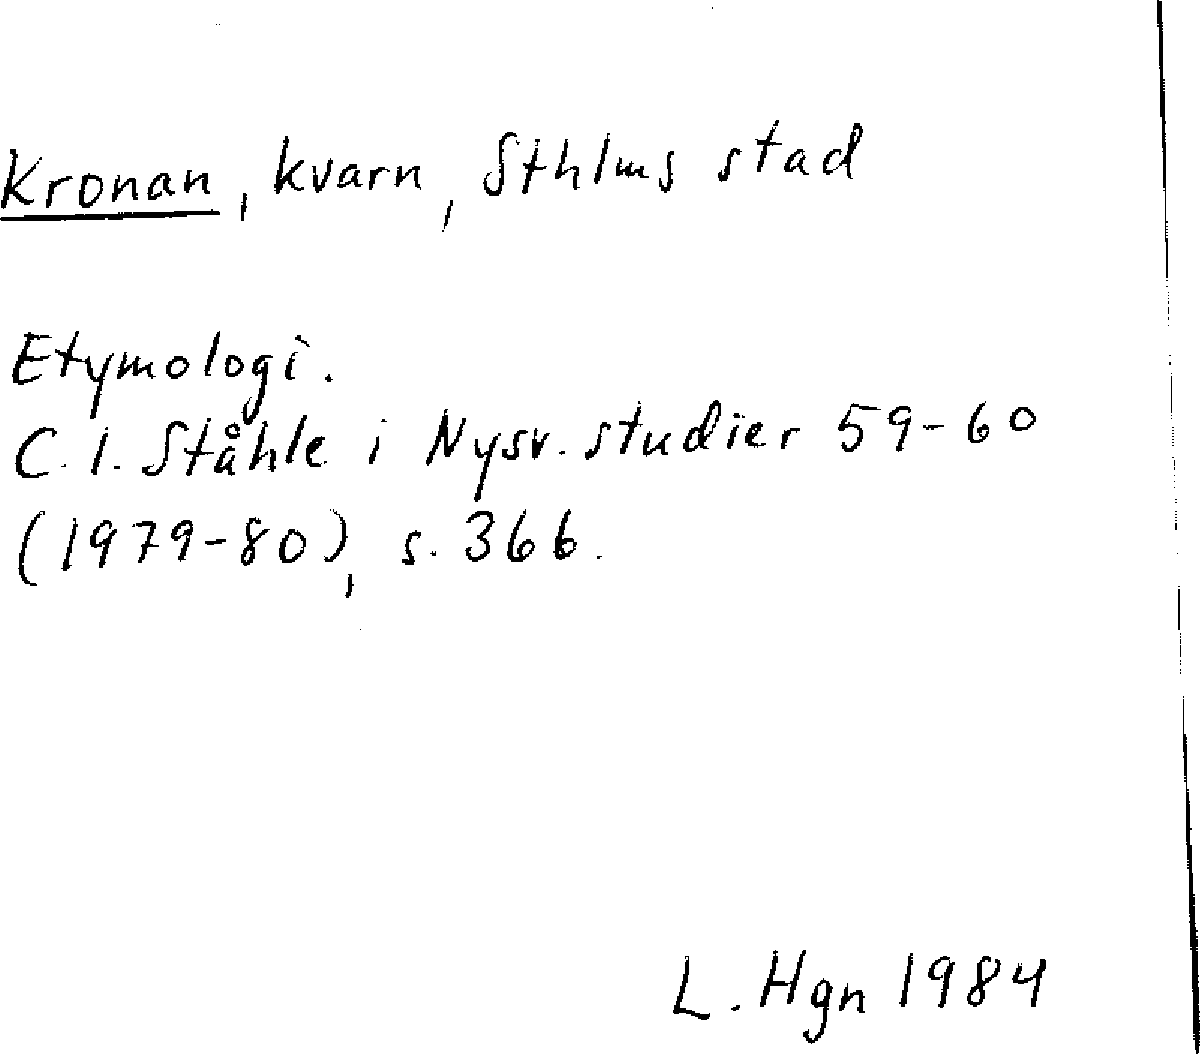 Kronan, kvarn, Sthlms stad
Etymologi.
C. I. Ståhle i Nysv. studier 59-60
(1979-80), s. 366.
L. Hgn 1984